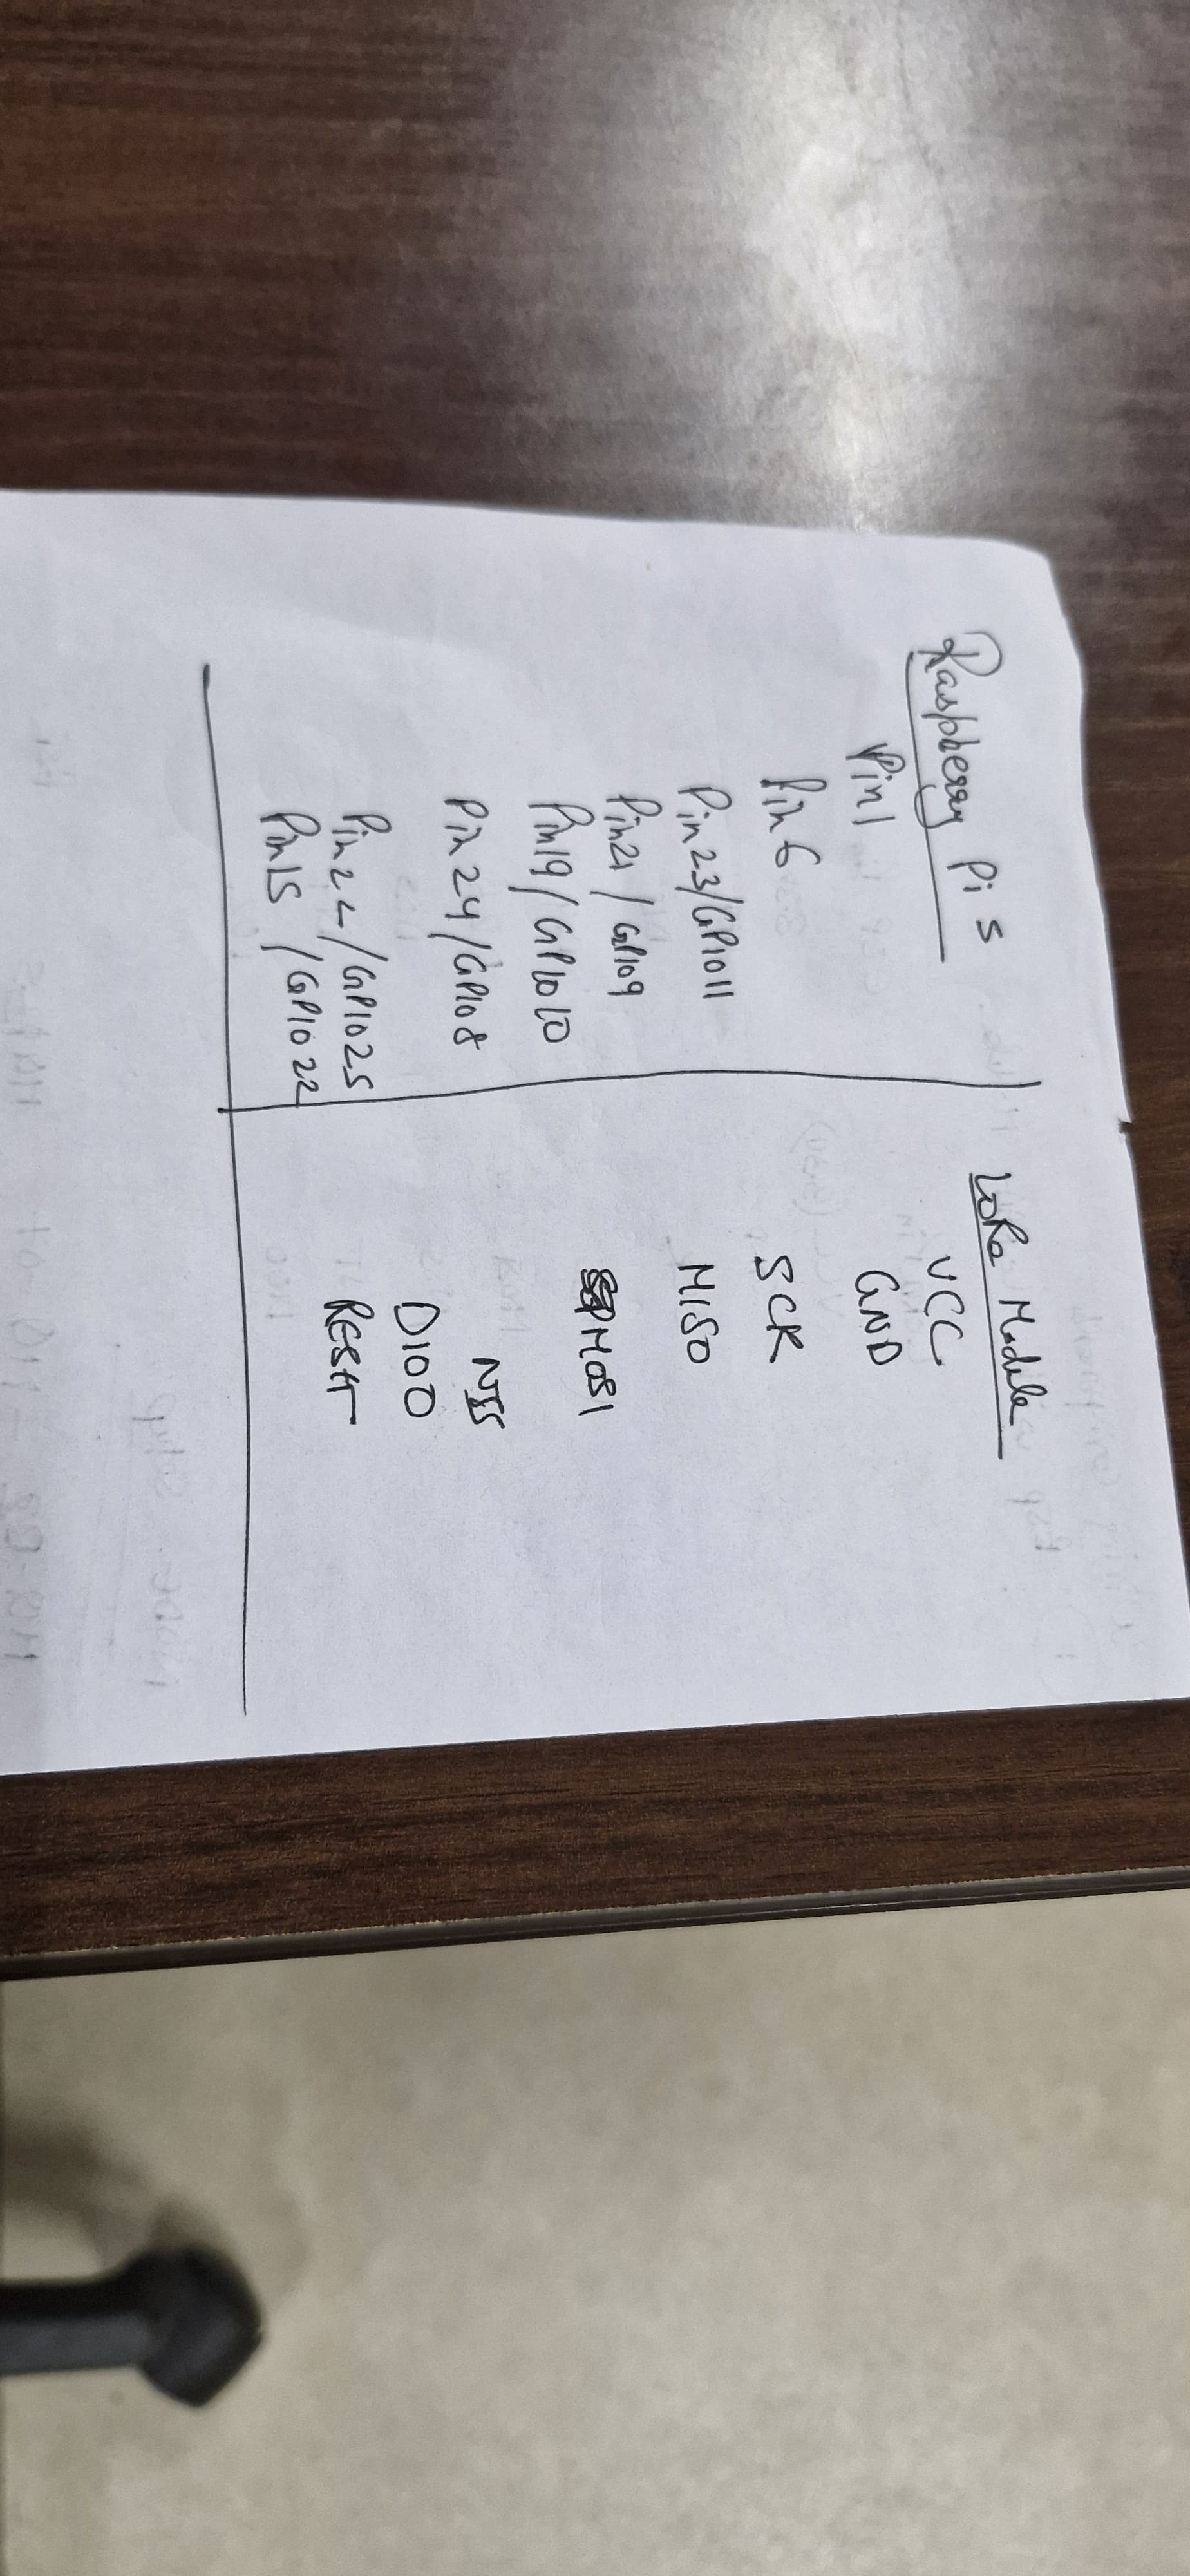 Raspberry Pi 5 LoRa Module
Pin1 VCC
Pin 6 GND
Pin 23/GPIO11 SCK
Pin21/GPIO9 MISO
Pin19/GPIO10 MOSI
Pin 24/GPIO8 NSS
Pin22/GPIO25 DIO0
Pin15/GPIO22 RESET